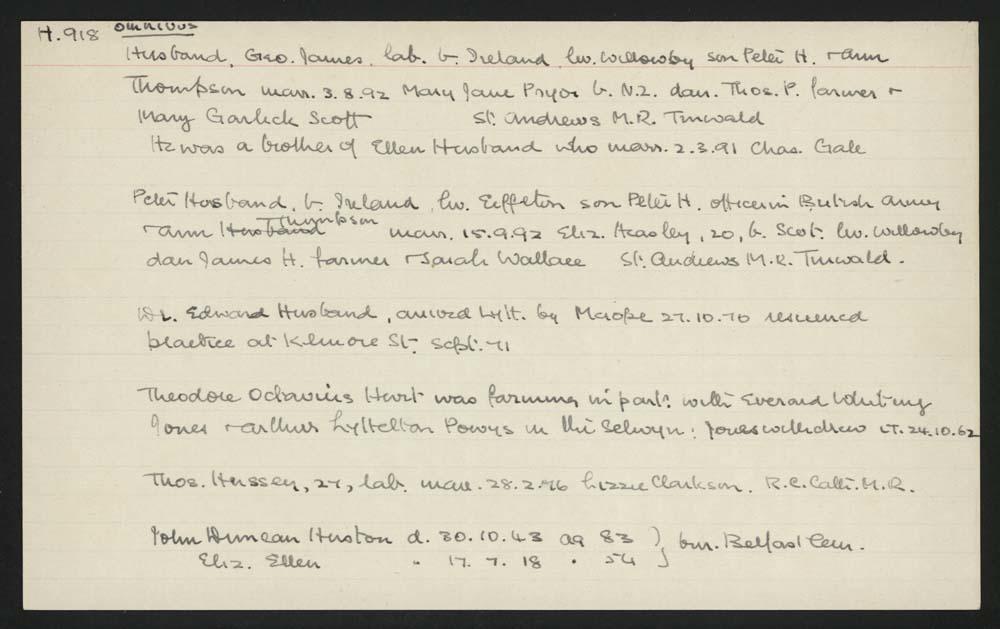 H.918 Omnibus
Husband, Geo. James, lab. b. Ireland, lw. Willowby son Peter H. + Ann
Thompson marr. 3.8.92 Mary Jane Pryor b. N.Z. dau. Thos. P. farmer +
Mary Garlick Scott St. Andrews M.R. Tinwald
He was a brother of Ellen Husband who marr. 2.3.91 Chas. Gale
Peter Husband, b. Ireland, lw. Eiffelton son Peter H. officer in British army
+ Ann Husband Thompson marr. 15.9.92 Eliz. Heasley, 20, b. Scot. lw. Willowby
dau James H. farmer + Sarah Wallace St. Andrews M.R. Tinwald.
Dr. Edward Husband, arrived Lytt. by Merope 27.10.70 resumed
practice at Kilmore St. Sept. 71
Theodore Octavius Hurt was farming in part. with Everard Whiting
Jones + Arthur Lyttelton Powys in the Selwyn: Jones withdrew LT. 24.10.62
Thos. Hussey, 27, lab. marr. 28.2.76 Lizzie Clarkson. R.C. Cath. M.R.
John Duncan Huston d. 30.10.43 ag 83 } bur. Belfast Cem.
Eliz. Ellen " 17.7.18 " 54 }